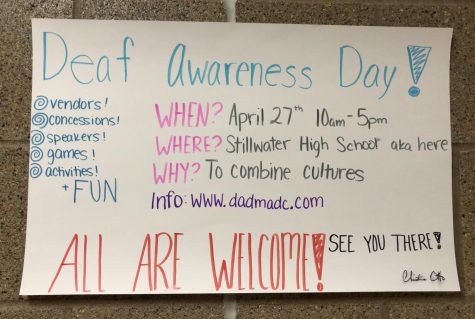 Deaf Awareness Day!
vendors!
concessions!
speakers!
games!
activities!
+ FUN
WHEN? April 27th 10am-5pm
WHERE? Stillwater High School aka here
WHY? To combine cultures
Info: www.dadmadc.com
ALL ARE WELCOME!
SEE YOU THERE!